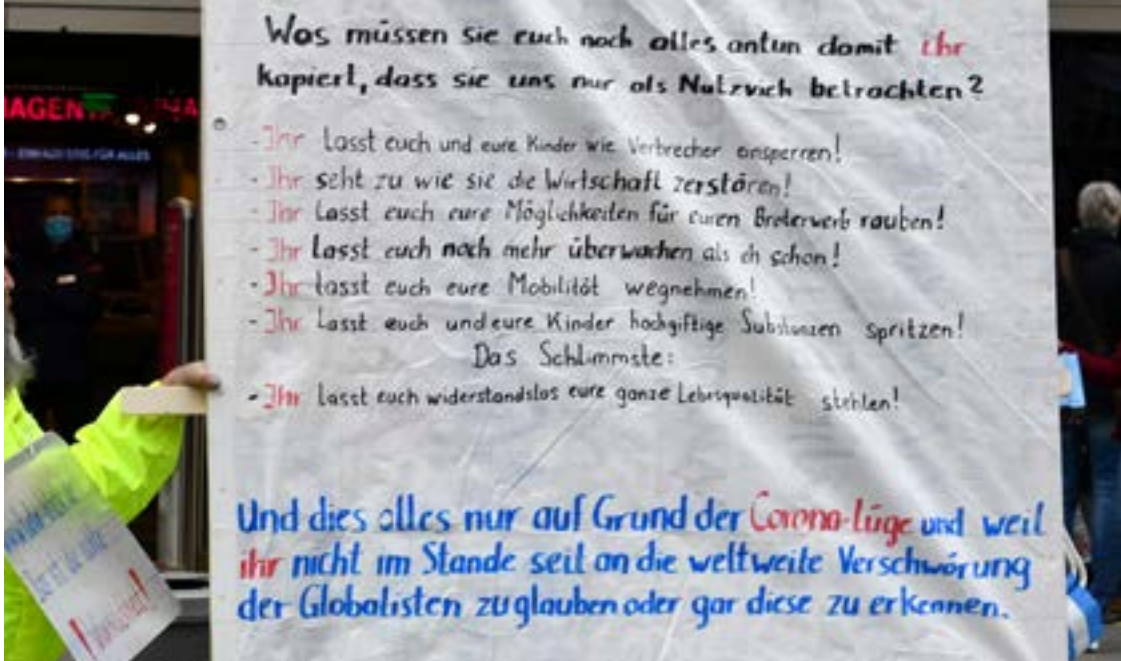 Was müssen sie euch noch alles antun damit ihr
kapiert, dass sie uns nur als Nutzvieh betrachten?
- Ihr lasst euch und eure Kinder wie Verbrecher einsperren!
- Ihr seht zu wie sie die Wirtschaft zerstören!
- Ihr lasst euch eure Möglichkeiten für euren Broterwerb rauben!
- Ihr lasst euch noch mehr überwachen als eh schon!
- Ihr lasst euch eure Mobilität wegnehmen!
- Ihr lasst euch und eure Kinder hochgiftige Substanzen spritzen!
Das Schlimmste:
- Ihr lasst euch widerstandslos eure ganze Lebensqualität stehlen!
Und dies alles nur auf Grund der Corona-Lüge und weil
ihr nicht im Stande seit an die weltweite Verschwörung
der Globalisten zu glauben oder gar diese zu erkennen.
HAGEN